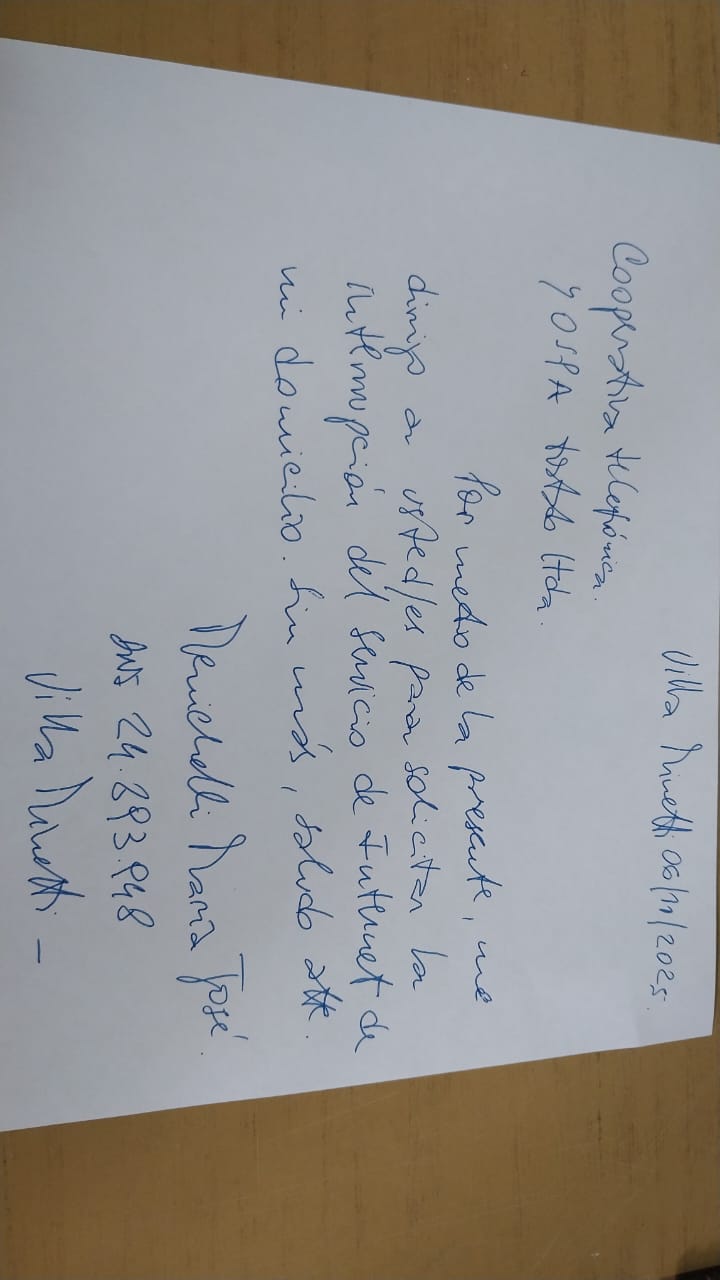 Villa Minetti 06/11/2025.
Cooperativa telefónica.
y OSPA tostado ltda.
Por medio de la presente, me
dirijo a usted/es para solicitar la
interrupción del servicio de Internet de
mi domicilio. Sin más, saludo atte.
Demichelli María José.
DNI 24.293.948
Villa Minetti -